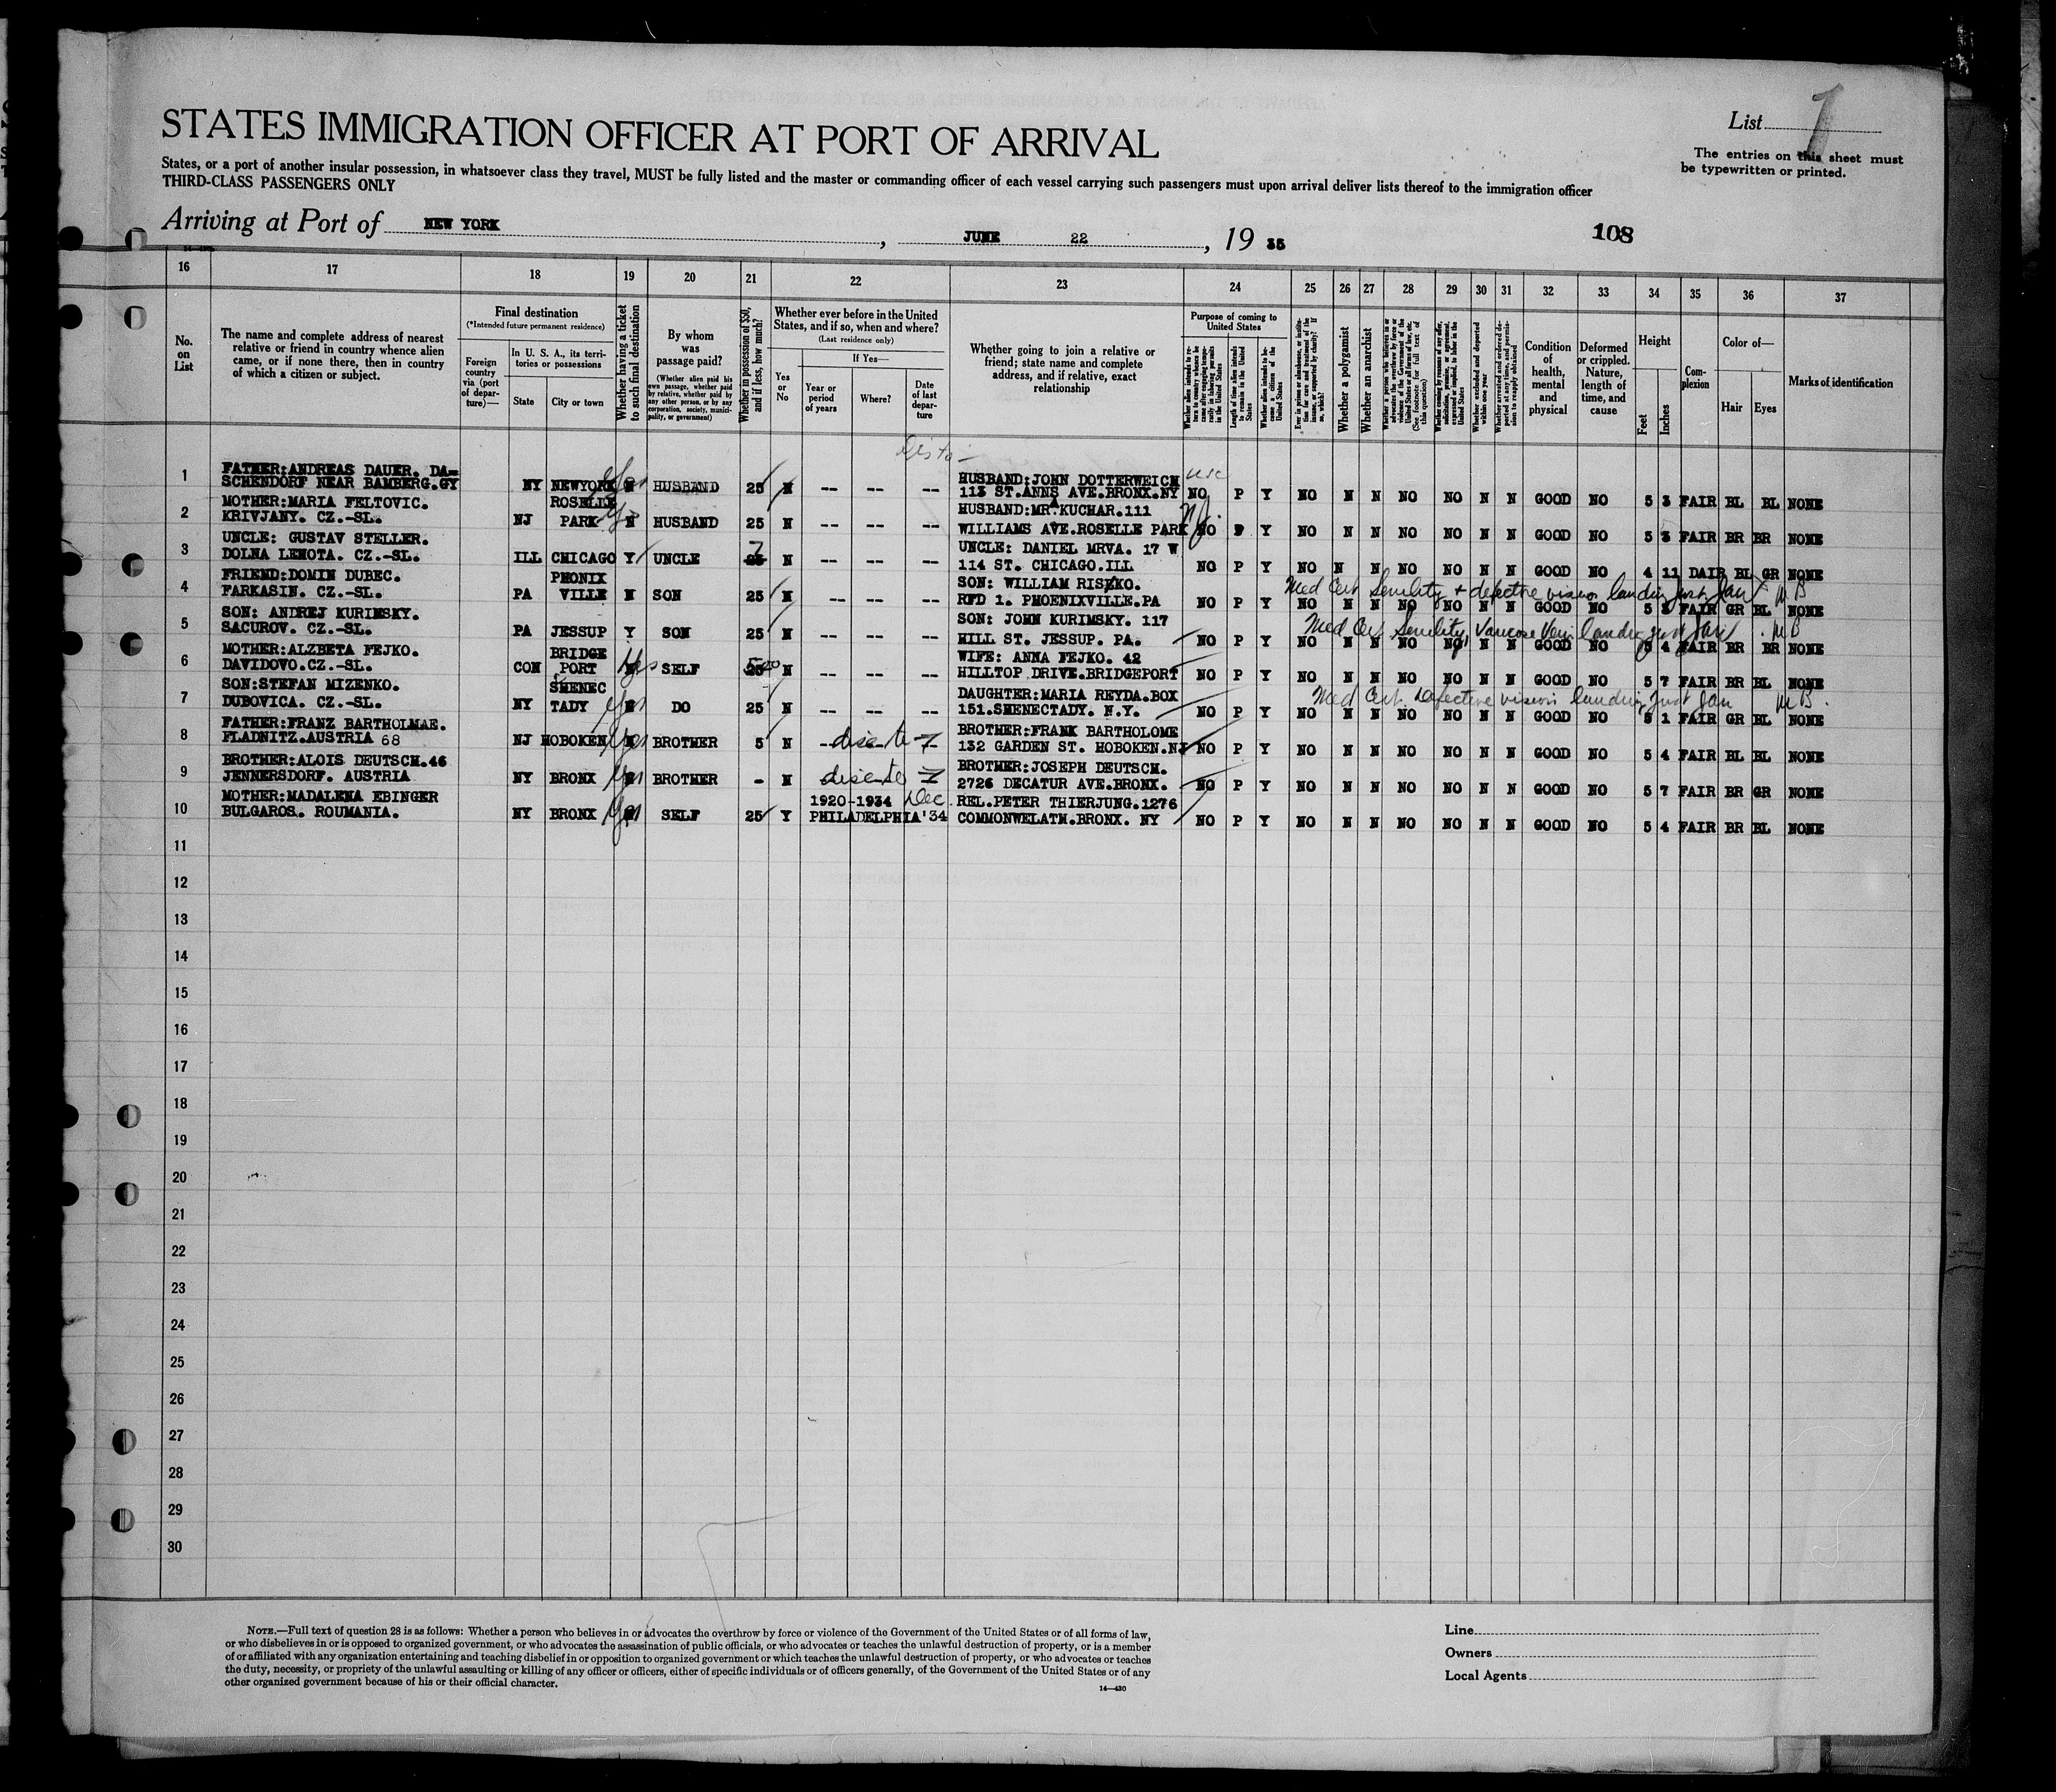 STATES IMMIGRATION OFFICER AT PORT OF ARRIVAL
List 7
The entries on this sheet must
be typewritten or printed.
States, or a port of another insular possession, in whatsoever class they travel, MUST be fully listed and the master or commanding officer of each vessel carrying such passengers must upon arrival deliver lists thereof to the immigration officer
THIRD-CLASS PASSENGERS ONLY
Arriving at Port of NEW YORK, JUNE 22, 19 35
108
16 17 18 19 20 21 22 23 24 25 26 27 28 29 30 31 32 33 34 35 36 37
No. on List
The name and complete address of nearest
relative or friend in country whence alien
came, or if none there, then in country
of which a citizen or subject.
Final destination
(*Intended future permanent residence)
Foreign country via (port of departure)—
In U. S. A., its territories or possessions
State
City or town
Whether having a ticket to such final destination
By whom was passage paid?
(Whether alien paid his own passage, whether paid by relative, whether paid by any other person, or by any corporation, society, municipality, or government)
Whether in possession of $50, and if less, how much?
Whether ever before in the United States, and if so, when and where?
(Last residence only)
Yes or No
If Yes—
Year or period of years
Where?
Date of last departure
Whether going to join a relative or
friend; state name and complete
address, and if relative, exact
relationship
Purpose of coming to United States
Whether a polygamist
Whether an anarchist
Condition of health, mental and physical
Deformed or crippled. Nature, length of time, and cause
Height
Feet
Inches
Complexion
Color of—
Hair
Eyes
Marks of identification
1 FATHER:ANDREAS DAUER. DA=
SCHENDORF NEAR BAMBERG.GY NY NEWYORK Yes HUSBAND 25 N -- -- -- HUSBAND:JOHN DOTTERWEICH
113 ST.ANNS AVE.BRONX.NY NO P Y NO N N NO NO N N GOOD NO 5 3 FAIR BL BL NONE
2 MOTHER:MARIA FELTOVIC.
KRIVJANY. CZ.-SL. NJ ROSELLE PARK N HUSBAND 25 N -- -- -- HUSBAND:MR.KUCHAR.111
WILLIAMS AVE.ROSELLE PARK NO P Y NO N N NO NO N N GOOD NO 5 3 FAIR BR BR NONE
3 UNCLE: GUSTAV STELLER.
DOLNA LEHOTA. CZ.-SL. ILL CHICAGO Y UNCLE 25 7 N -- -- -- UNCLE: DANIEL MRVA. 17 W
114 ST. CHICAGO.ILL NO P Y NO N N NO NO N N GOOD NO 4 11 DAIR BL GR NONE
4 FRIEND:DOMIN DUBEC.
FARKASIN. CZ.-SL. PA PHONIX VILLE N SON 25 N -- -- -- SON: WILLIAM RISZKO.
Med Cert Senility & defective vision
RFD 1. PHOENIXVILLE.PA NO P Y NO N N NO NO N N GOOD NO 5 FAIR GR BL NONE
5 SON: ANDREJ KURIMSKY.
SACUROV. CZ.-SL. PA JESSUP Y SON 25 N -- -- -- SON: JOHN KURIMSKY. 117
Med Cert Senility, Varicose Veins
HILL ST. JESSUP. PA. NO P Y NO N N NO NO N N GOOD NO 5 4 FAIR BR BR NONE
6 MOTHER:ALZBETA FEJKO.
DAVIDOVO.CZ.-SL. CON BRIDGE PORT Yes SELF 25 N -- -- -- WIFE: ANNA FEJKO. 42
HILLTOP DRIVE.BRIDGEPORT NO P Y NO N N NO NO N N GOOD NO 5 7 FAIR BR BL NONE
7 SON:STEFAN MIZENKO.
DUBOVICA. CZ.-SL. NY SHENEC TADY Yes DO 25 N -- -- -- DAUGHTER:MARIA REYDA.BOX
Med Cert Defective vision
151.SHENECTADY. N.Y. NO P Y NO N N NO NO N N GOOD NO 5 1 FAIR GR BL NONE
8 FATHER:FRANZ BARTHOLMAE.
FLADNITZ.AUSTRIA 68 NJ HOBOKEN Yes BROTHER 5 N -- -- -- BROTHER:FRANK BARTHOLOME
132 GARDEN ST. HOBOKEN.NJ NO P Y NO N N NO NO N N GOOD NO 5 4 FAIR BL BL NONE
9 BROTHER:ALOIS DEUTSCH.46
JENNERSDORF. AUSTRIA NY BRONX Yes BROTHER - N BROTHER:JOSEPH DEUTSCH.
2726 DECATUR AVE.BRONX. NO P Y NO N N NO NO N N GOOD NO 5 7 FAIR BR GR NONE
10 MOTHER:MADALENA EBINGER
BULGAROS. ROUMANIA. NY BRONX Yes SELF 25 Y 1920-1934 PHILADELPHIA Dec. '34 REL.PETER THIERJUNG.1276
COMMONWELATH.BRONX. NY NO P Y NO N N NO NO N N GOOD NO 5 4 FAIR BR BL NONE
11
12
13
14
15
16
17
18
19
20
21
22
23
24
25
26
27
28
29
30
NOTE.—Full text of question 28 is as follows: Whether a person who believes in or advocates the overthrow by force or violence of the Government of the United States or of all forms of law,
or who disbelieves in or is opposed to organized government, or who advocates the assassination of public officials, or who advocates or teaches the unlawful destruction of property, or is a member
of or affiliated with any organization entertaining and teaching disbelief in or opposition to organized government or which teaches the unlawful destruction of property, or who advocates or teaches
the duty, necessity, or propriety of the unlawful assaulting or killing of any officer or officers, either of specific individuals or of officers generally, of the Government of the United States or of any
other organized government because of his or their official character.
14—430
Line
Owners
Local Agents